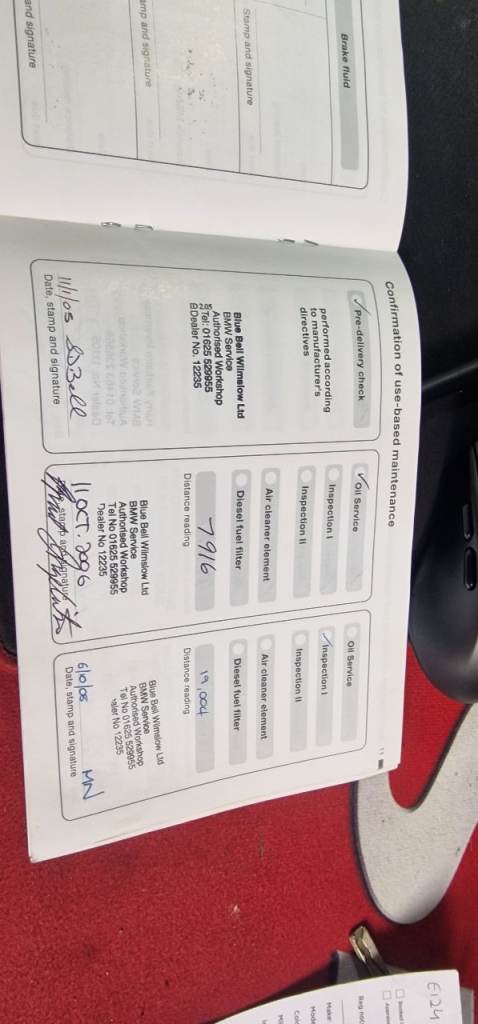 Brake fluid
Stamp and signature
amp and signature
and signature
Confirmation of use-based maintenance
✓ Pre-delivery check
performed according
to manufacturer's
directives
Blue Bell Wilmslow Ltd
BMW Service
Authorised Workshop
Tel: 01625 529955
Dealer No. 12235
11/1/05
Date, stamp and signature
✓ Oil Service
Inspection I
Inspection II
Air cleaner element
Diesel fuel filter
7916
Distance reading
Blue Bell Wilmslow Ltd
BMW Service
Authorised Workshop
Tel No 01625 529955
Dealer No 12235
stamp and signature
Oil Service
✓ Inspection I
Inspection II
Air cleaner element
Diesel fuel filter
19,004
Distance reading
Blue Bell Wilmslow Ltd
BMW Service
Authorised Workshop
Tel No 01625 529955
aler No 12235
6/10/05 MN
Date, stamp and signature
11
E124
Reg no
Make: